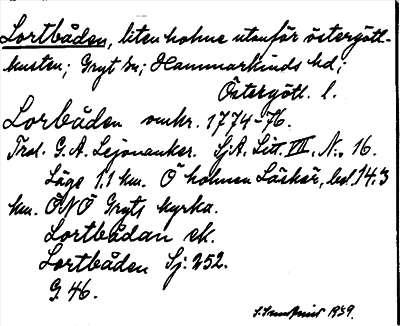 Lortbåden, liten holme utanför östergötl-
kusten; Gryt sn; Hammarkinds hd;
Östergötl. l.
Lorbåden omkr. 1774-76.
Trol. G. A. Lejonanker. Sj.A. Litt. VII, N:o 16.
Läge 1.1 km. Ö holmen Läskär, bel. 14.3
km. ÖNÖ Gryts kyrka.
Lortbådan ek.
Lortbåden Sj: 252.
G 46.
1939.